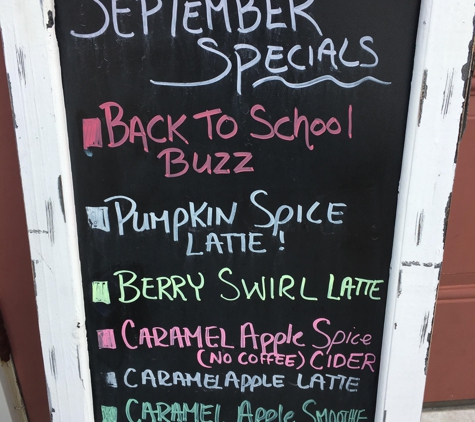 SEPTEMBER
SPECIALS
BACK TO School
BUZZ
PUMPKIN SPICE
LATTE!
BERRY SWIRL LATTE
CARAMEL Apple Spice
(NO COFFEE) CIDER
CARAMEL APPLE LATTE
CARAMEL Apple SMOOTHIE